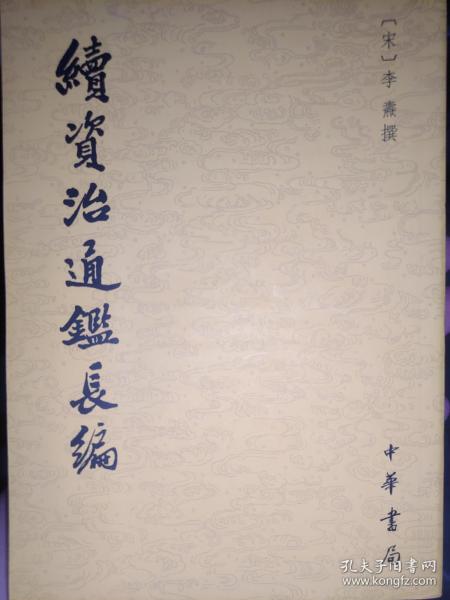 〔宋〕李燾撰
續資治通鑑長編
中華書局
孔夫子旧书网
www.kongfz.com